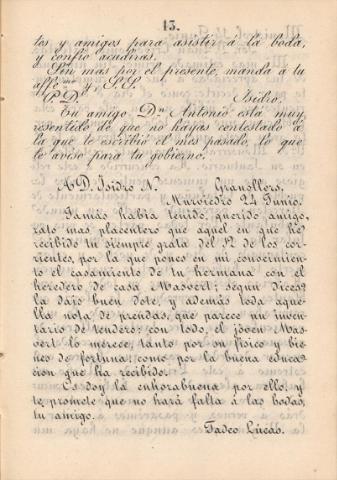 13.
tos y amigos para asistir á la boda,
y confio acudiras.
Sin mas por el presente, manda á tu
affmo. y S. S.
P. D. Isidro.
Tu amigo Dn. Antonio está muy
resentido de que no hayas contestado á
la que te escribió el mes pasado, lo que
te aviso para tu gobierno.
A D. Isidro N. Granollers,
Murviedro 24 Junio.
Jamás habia tenido, querido amigo,
rato mas placentero que aquel en que he
recibido tu siempre grata del 12 de los cor-
rientes, por la que pones en mi conocimien-
to el casamiento de tu hermana con el
heredero de casa Masvert; segun dices,
la dais buen dote, y además toda aque-
lla nota de prendas, que parece un inven-
tário de tendero; con todo, el jóven Mas-
vert lo merece, tanto por su físico y bie-
nes de fortuna, como por la buena educa-
cion que ha recibido.
Os doy la enhorabuena por ello, y
te promete que no hará falta á las bodas,
tu amigo.
Tadeo Lúcas.